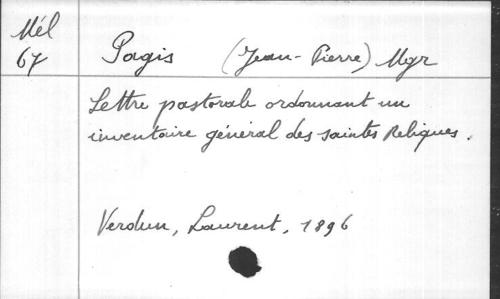 Mél
67
Pagis (Jean-Pierre) Mgr
Lettre pastorale ordonnant un
inventaire général des saintes Reliques.
Verdun, Laurent, 1896